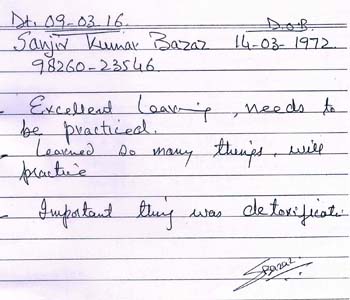 Dt. 09-03-16.
D.O.B.
Sanjiv Kumar Bazaz 14-03-1972.
98260-23546.
- Excellent learning, needs to
be practiced.
- Learned so many things, will
practice
- Important thing was detoxificati
SBazaz.